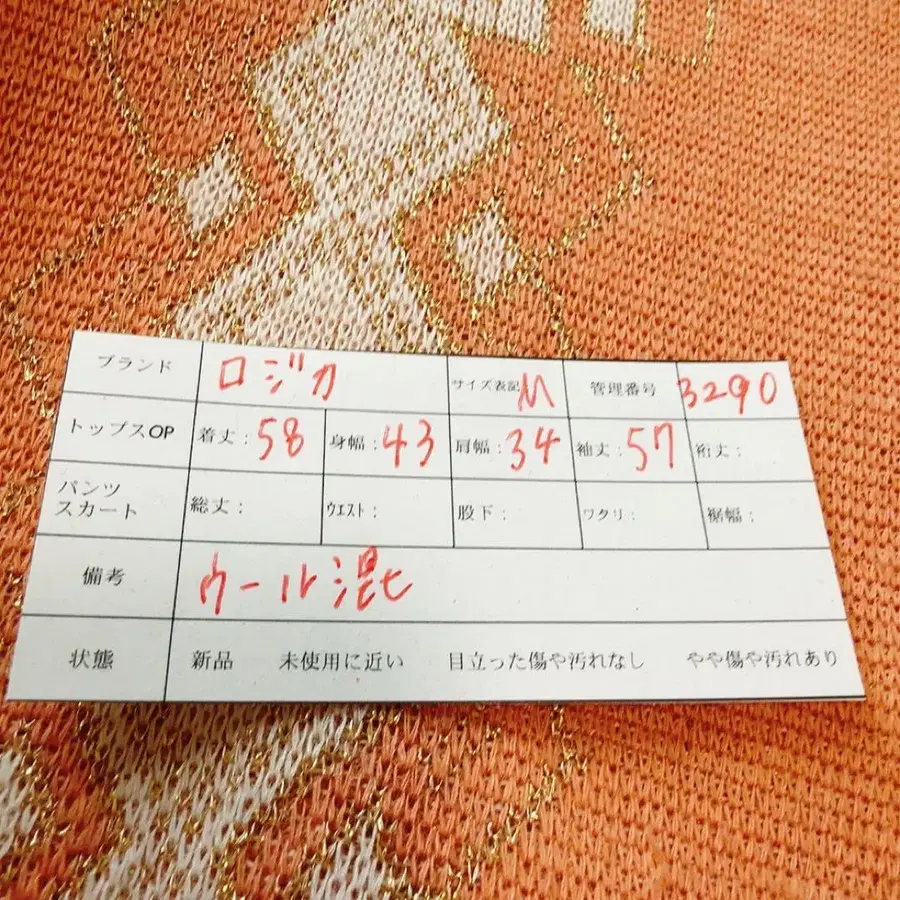 ブランド ロジカ サイズ表記 M 管理番号 3290
トップスOP 着丈：58 身幅：43 肩幅：34 袖丈：57 裄丈：
パンツ
スカート 総丈： ウエスト： 股下： ワタリ： 裾幅：
備考 ウール混
状態 新品 未使用に近い 目立った傷や汚れなし やや傷や汚れあり